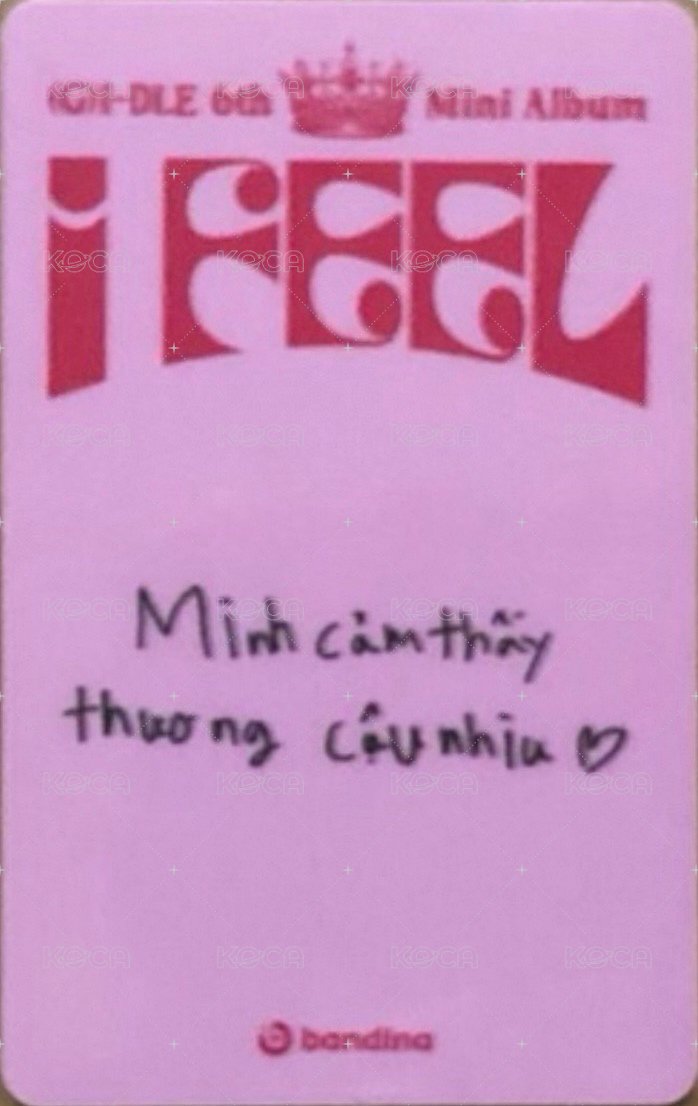 (G)I-DLE 6th Mini Album
I FEEL
Mình cảm thấy
thương cậu nhìu ♡
bandina
KOCA